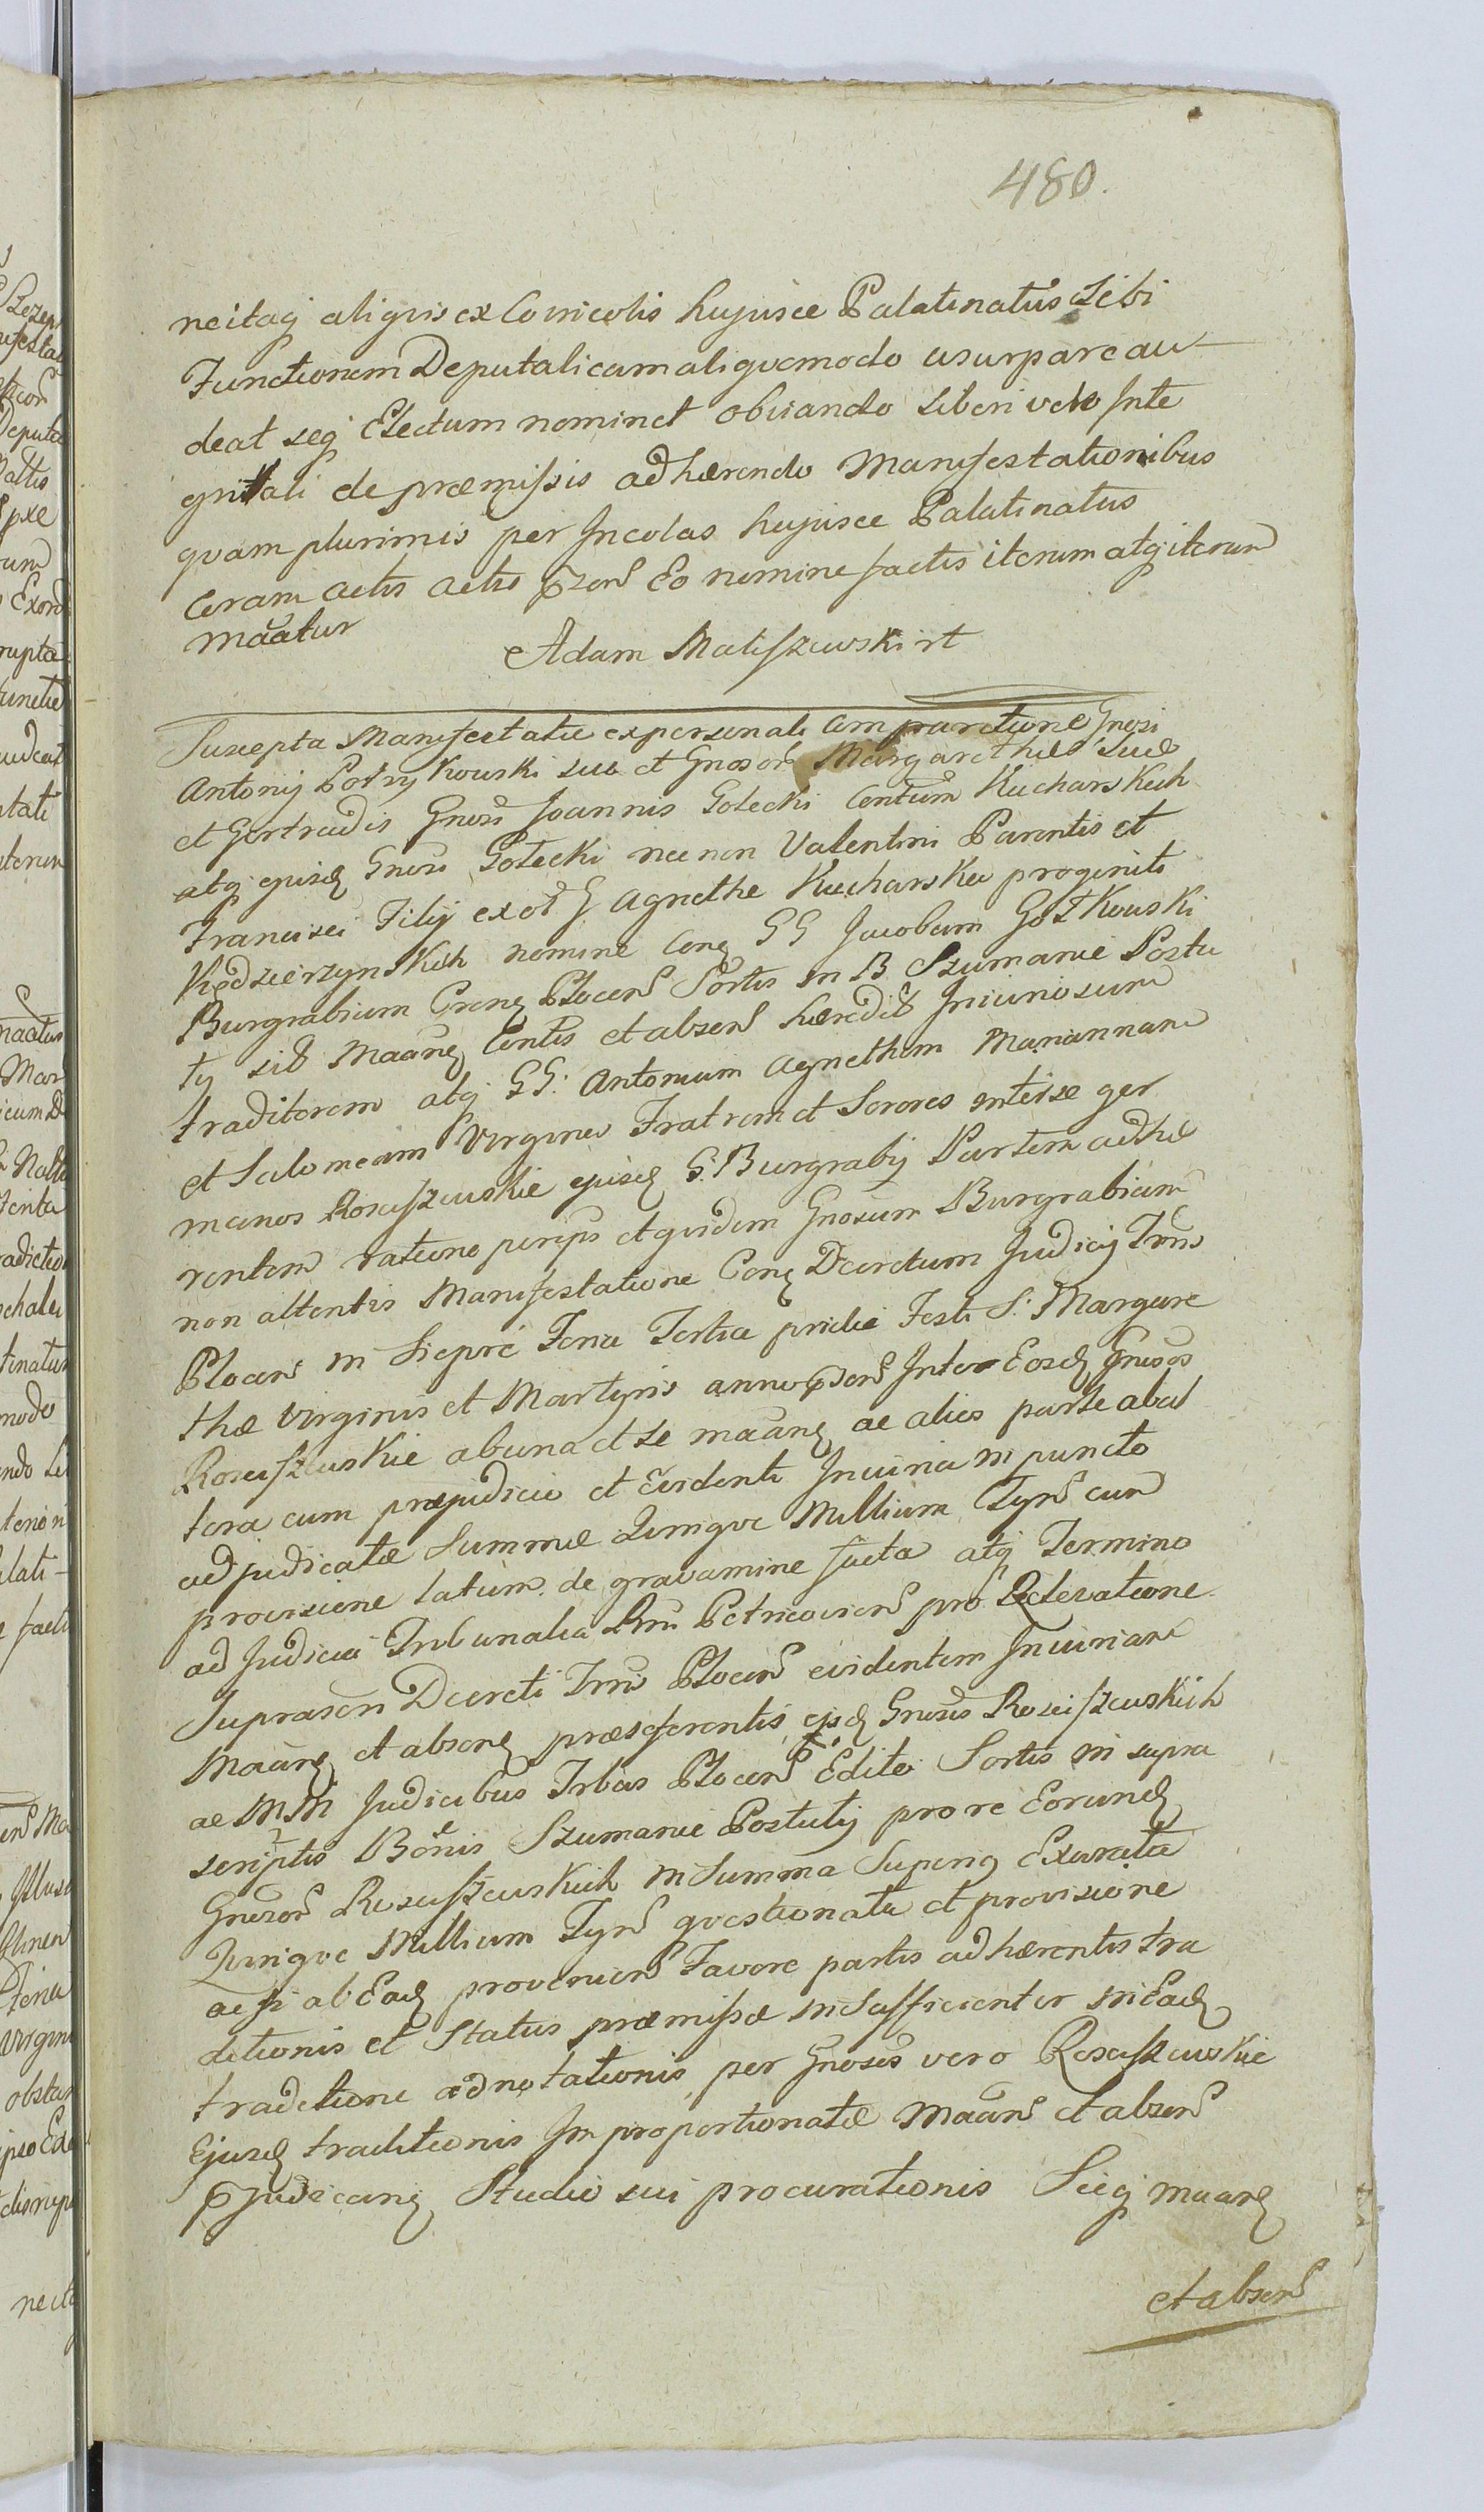 480.
ne itaq aliquis ex Comicolis hujusce Palatinatus Sibi
Functionem Deputalicam aliquomodo usurpare au
deat seq Electum nominet obviando liberi veto Inte
gritati de præmissis adhærendo Manifestationibus
quam plurimis per Incolas hujusce Palatinatus
Coram actis actis pzen Eo nomine factis iterum atq iterum
maatur
Adam Maliszewski rt
Suscepta Manifestatio ex personali Comparitione Gnosi
Antonij Potrykowski suo et Gnosor Margarethæ suæ
et Gertrudis Gnosi Joannis Gołecki Contum Kucharskich
atq ejusd Gnosi Gołecki nec non Valentini Parentis et
Francisci Filij ex ol G Agnethe Kucharska progeniti
Kędzierzynskich nomine Conq GG Jacobum Gostkowski
Burgrabium Crenq Plocen Sortis in B Szumanie Postu
ty sib Maanq Contis et absen hæredib Iniuriosum
traditorem atq GG. Antonium Agnethem Mariannam
et Salomeam Virgines Fratrem et Sorores inter se ger
manos Rosciszewskie ejusd G. Burgrabij Partem adhæ
rentem ratione permis et quidem Gnosum Burgrabium
non attentis Manifestatione Conq Decretum Judicij Trris
Plocen in Sieprc Feria Tertia pridie Festi S. Margare
thæ Virginis et Martyris anno pzen Inter Eosd Gnosos
Rosciszewskie ab una et se maanq ac alios parte ab al
tera cum præjudicio et Evidenti Iniuria in puncto
adjudicatæ Summæ Quinque Millium Tynf cum
provisione latum. de gravamine facta atq Termino
ad Judicia Tribunalia Rni Petricovien pro Relevatione
Suprascri Decreti Trris Plocen evidentem Iniuriam
Maanq et absenq præseferentis, ejsd Gnosis Rosciszewskich
ac MM Judicibus Trbus Plocen Edito Sortis in supra
scriptis Bonis Szumanie Postuty pro re Eorund
Gnosor Rosciszewskich in Summa Superiq Exarata
Quinque Millium Tynf questionata et provisione
ac si ab Ead provenien Favore partis adhærentis tra
ditionis et Status præmissæ insufficienter in Ead
traditione adnotationis per Gnosos vero Rosciszewskie
Ejusd traditionis Improportionatæ Maan et absen
pjudicanq Studio sui procurationis Sicq maanq
et absen